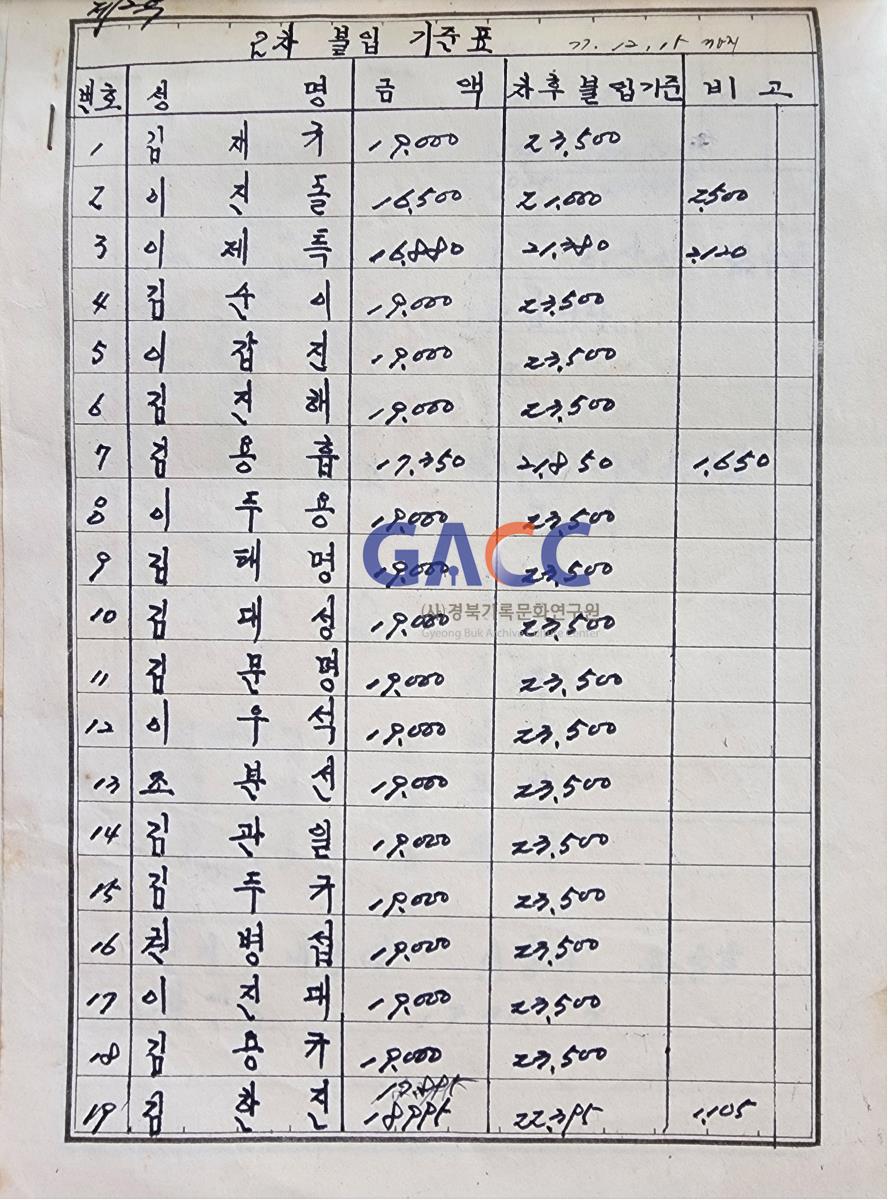 제2호
2차 불입 기준표 77. 12. 15 까지
번호 성 명 금 액 차후불입기준 비 고
1 김 재 규 19,000 23,500
2 이 진 돌 16,500 21,000 2,500
3 이 제 특 16,880 21,380 2,120
4 김 순 이 19,000 23,500
5 이 갑 진 19,000 23,500
6 김 진 해 19,000 23,500
7 김 용 흡 17,350 21,850 1,650
8 이 주 용 19,000 23,500
9 김 해 명 19,000 23,500
10 김 대 성 19,000 23,500
11 김 문 명 19,000 23,500
12 이 우 석 19,000 23,500
13 조 분 선 19,000 23,500
14 김 관 일 19,000 23,500
15 김 주 규 19,000 23,500
16 권 병 섭 19,000 23,500
17 이 진 대 19,000 23,500
18 김 용 규 19,000 23,500
19 김 한 진 22,395 1,105
GACC
(사)경북기록문화연구원
Gyeong Buk Archive Culture Center